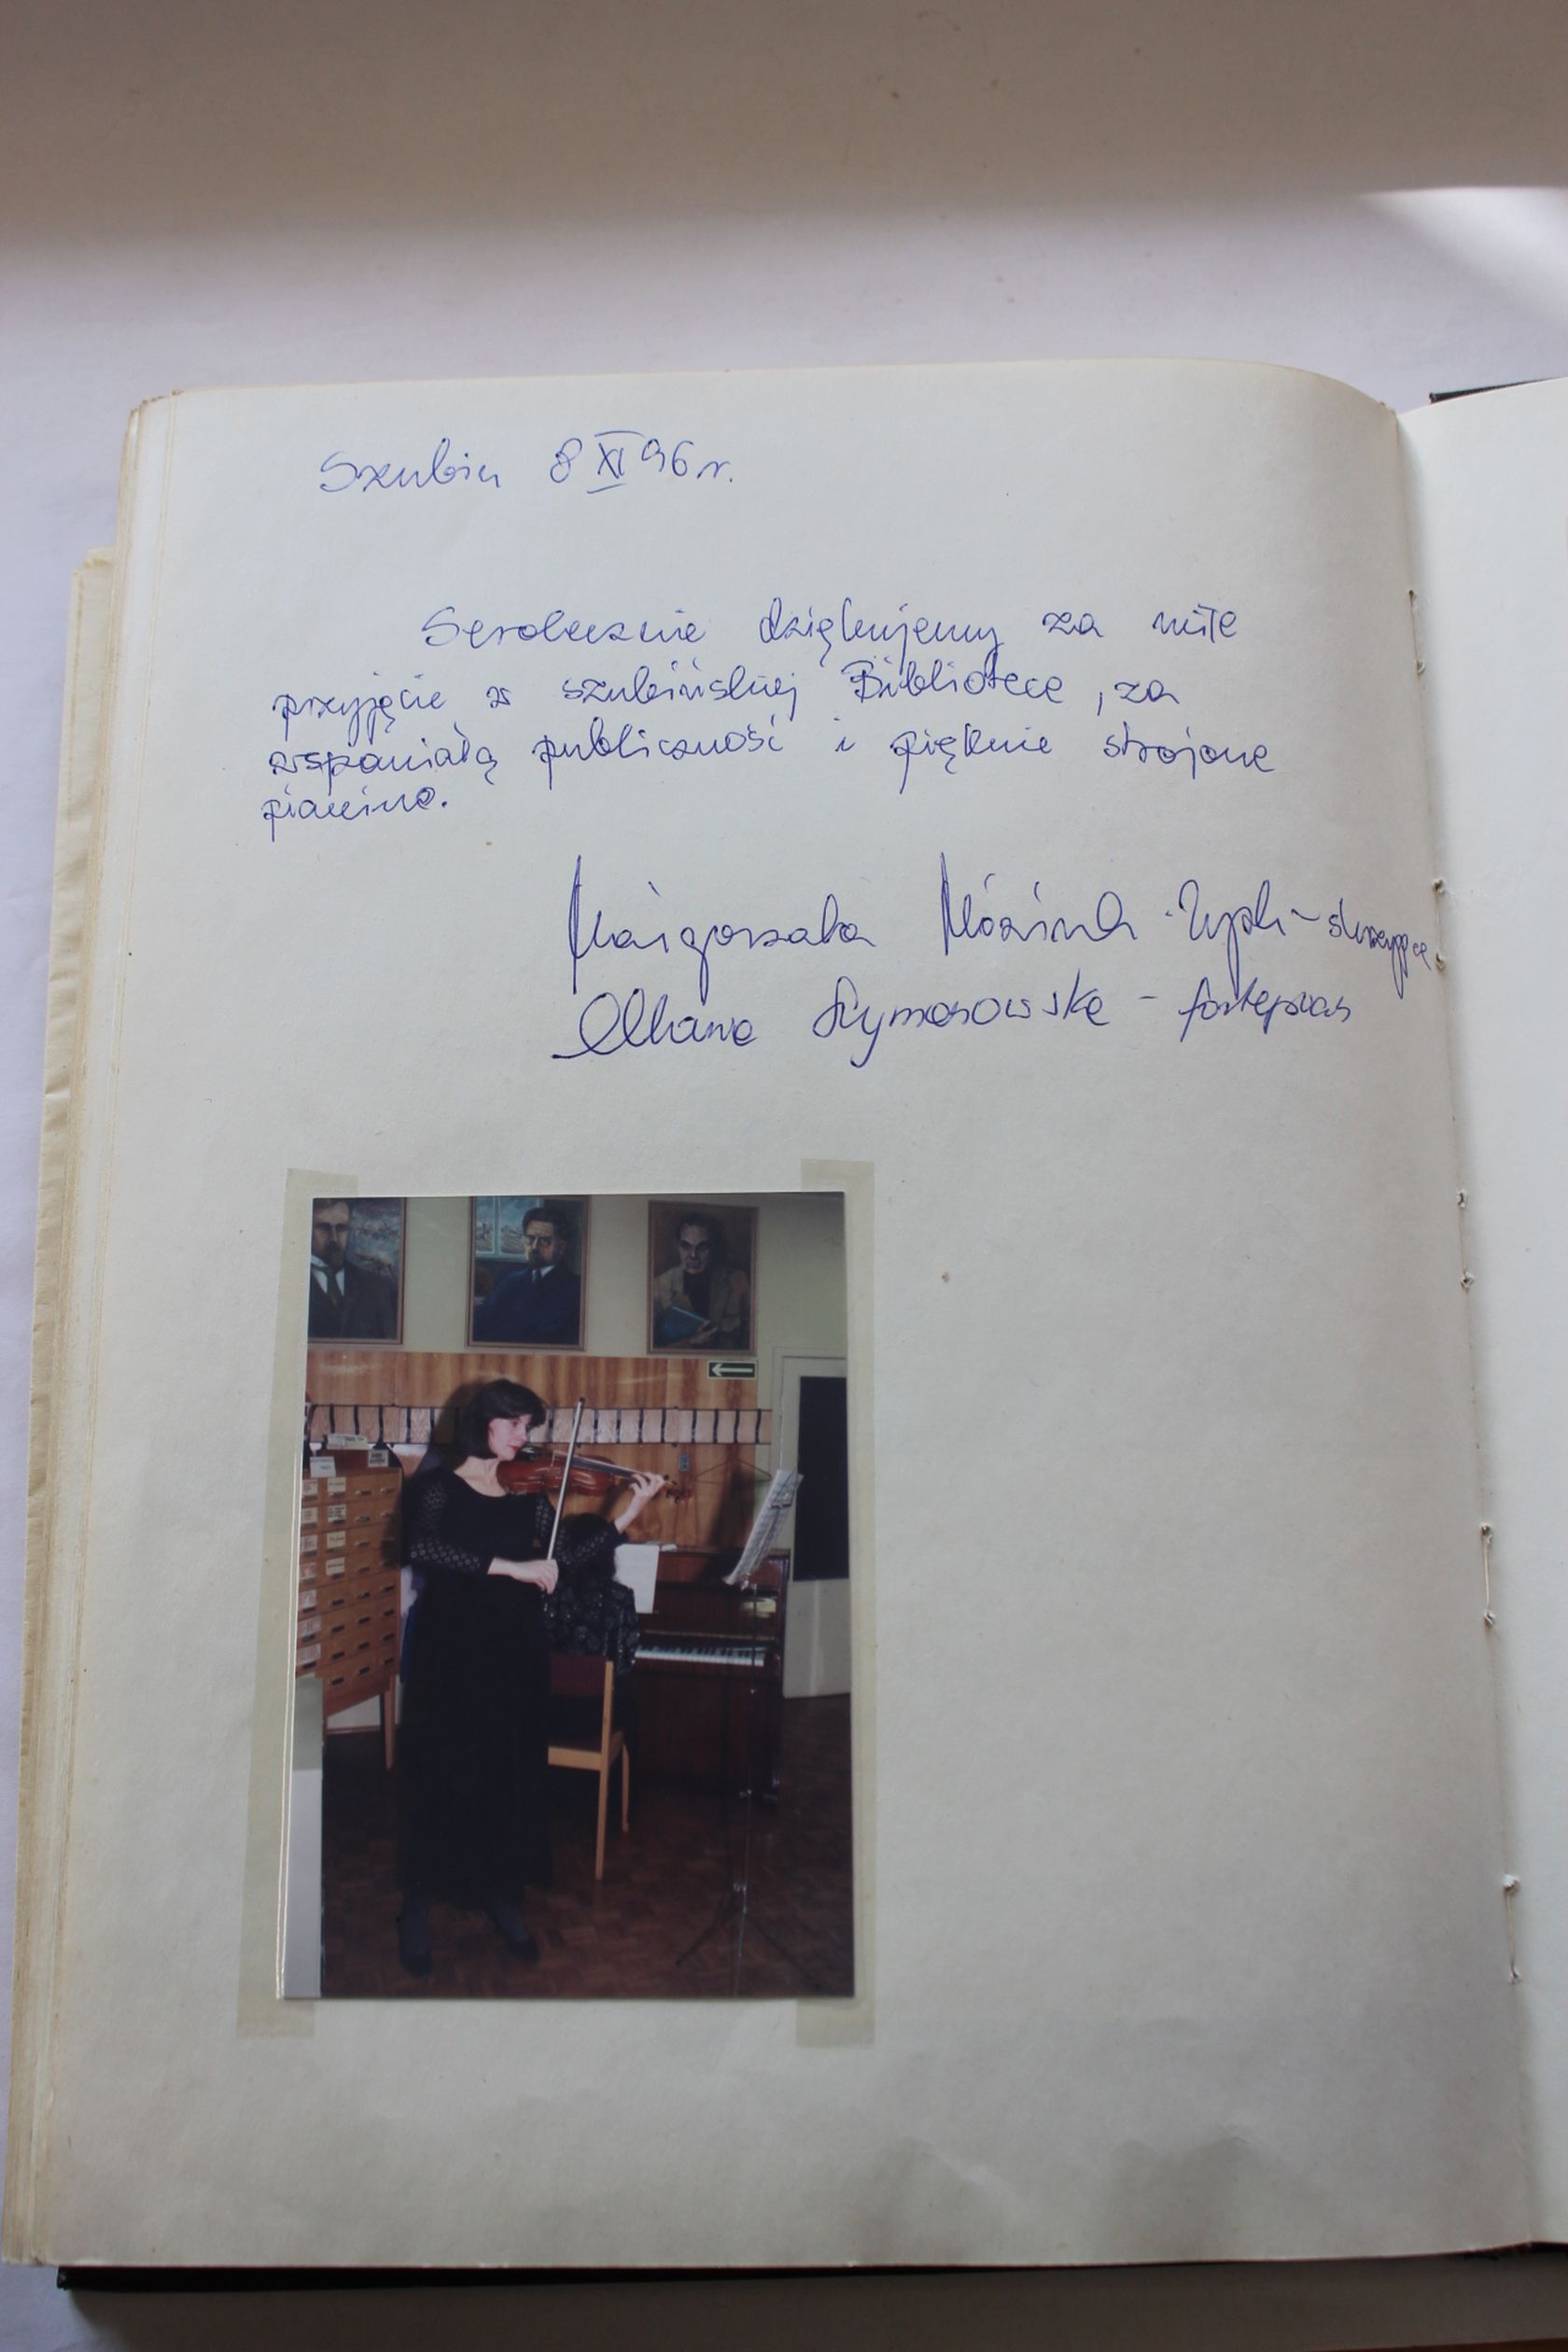 Szubin 8 XI 96 r.
Serdecznie dziękujemy za miłe
przyjęcie w szubińskiej Bibliotece, za
wspaniałą publiczność i pięknie strojone
pianino.
Małgorzata - skrzypce
Szymorowska - fortepian